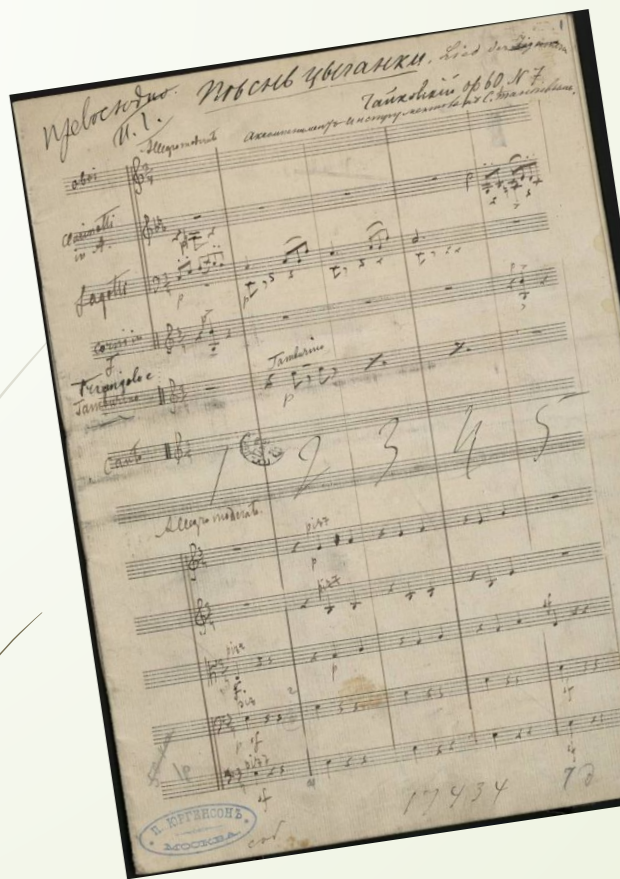 Превосходно. Пѣснь цыганки. Lied der Zigeunerin
П. Ю. Чайковскій op 60 N 7.
Allegro moderato Аккомпаниментъ инструментованъ С. Танѣевымъ.
oboi
Clarinetti
in A.
p
Fagotti
p
p
corni in
F
Triangolo e
Tamburino
Tamburino
p
Canto
1 2 3 4 5
Allegro moderato.
pizz
p
pizz
pizz
p
sf
f
piz
p sf
sf
pizz
sf
17434
П. ЮРГЕНСОНЪ
МОСКВА